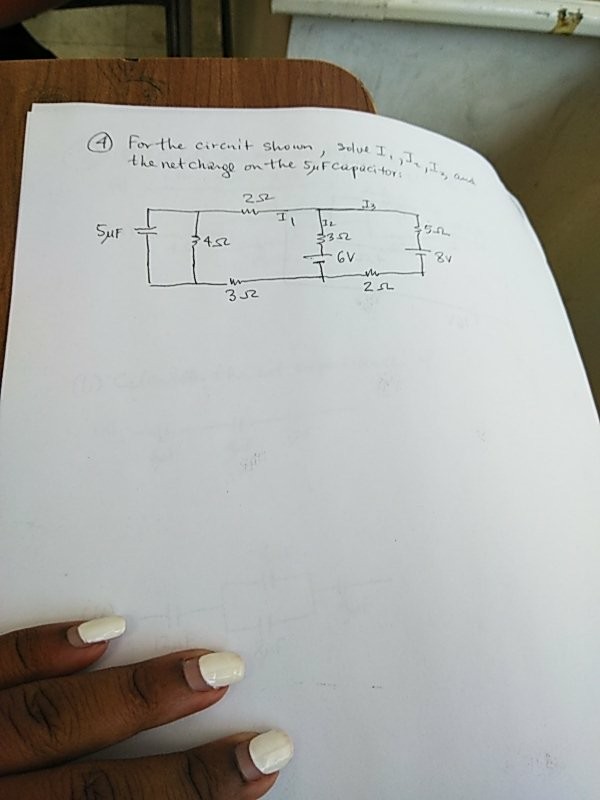 ④ For the circuit shown, solve I₁, I₂, I₃, and
the net charge on the 5μF capacitor:
2Ω
I₁ I₂ I₃
5μF 4Ω 3Ω 5Ω
6V 8V
3Ω 2Ω